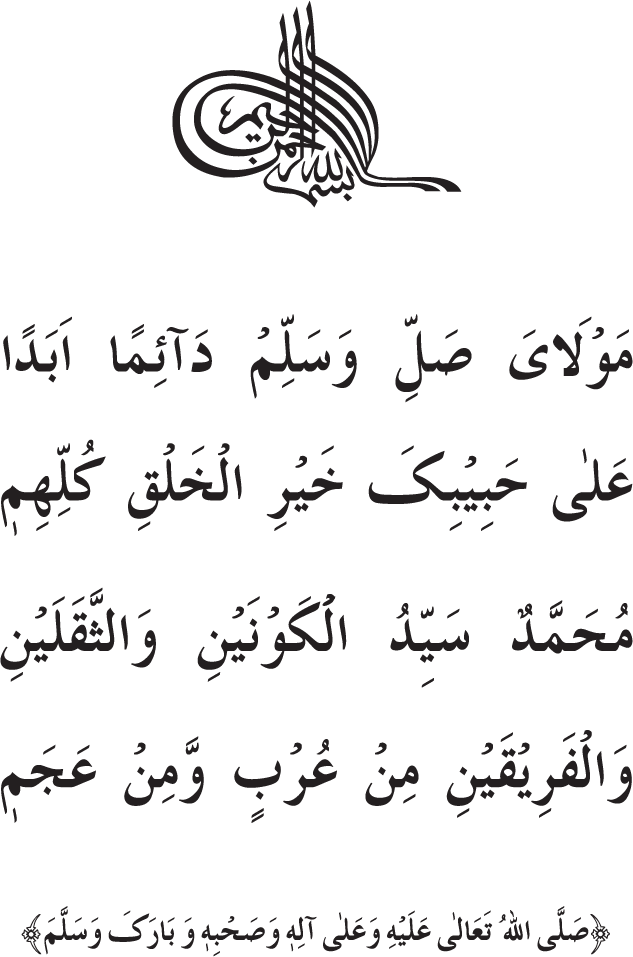 بسم الله الرحمن الرحيم
مَوْلَایَ صَلِّ وَسَلِّمْ دَآئِمًا اَبَدًا
عَلٰی حَبِیْبِکَ خَیْرِ الْخَلْقِ کُلِّهِمٖ
مُحَمَّدٌ سَیِّدُ الْکَوْنَیْنِ وَالثَّقَلَیْنِ
وَالْفَرِیْقَیْنِ مِنْ عُرْبٍ وَّمِنْ عَجَمٖ
﴿صَلَّی اللهُ تَعَالٰی عَلَیْهِ وَعَلٰی آلِهٖ وَصَحْبِهٖ وَ بَارَکَ وَسَلَّمَ﴾